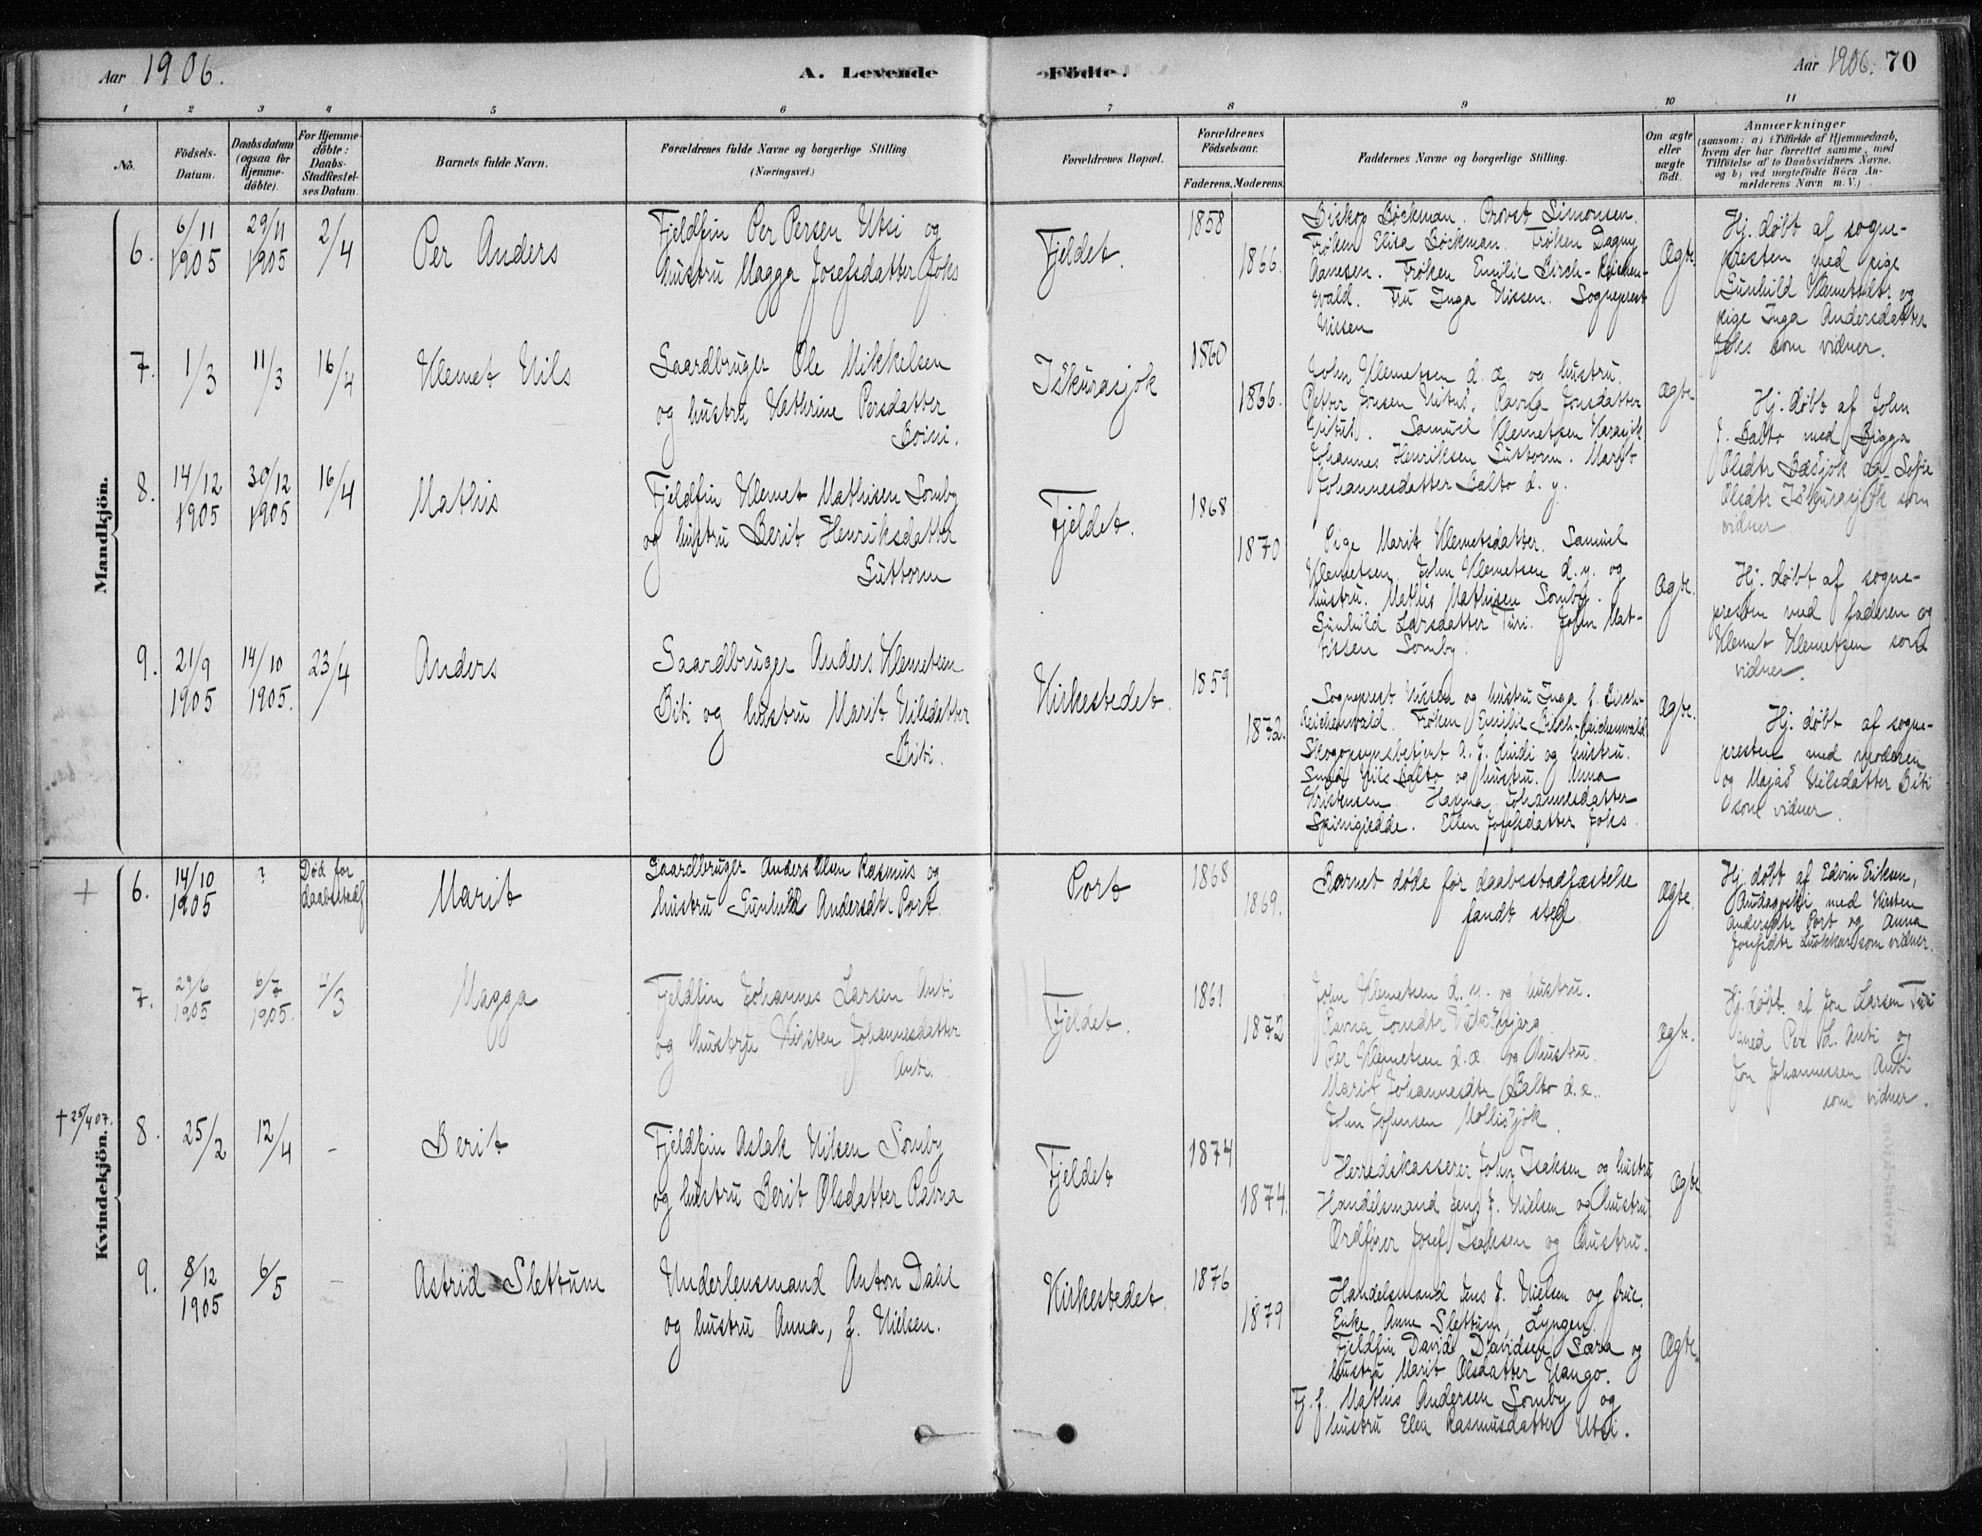 Aar 1906.
A. Levende Födte.
Aar 1906. 70
1 2 3 4 5 6 7 8 9 10 11
No.
Födsels-
Datum.
Daabsdatum
(ogsaa for
Hjemme-
döbte).
For Hjemme-
döbte:
Daabs-
Stadfæstel-
ses Datum.
Barnets fulde Navn.
Forældrenes fulde Navne og borgerlige Stilling
(Næringsvei.)
Forældrenes Bopæl.
Forældrenes
Födselsaar.
Faderens. Moderens.
Faddernes Navne og borgerlige Stilling.
Om ægte
eller
uægte
födt.
Anmærkninger
(saasom: a) i Tilfælde af Hjemmedaab,
hvem der har forrettet samme, med
Tilföielse af to Daabsvidners Navne,
og b) ved uægtefödte Börn An-
melderens Navn m. V.)
Mandkjön.
6.
6/11
1905
29/11
1905
2/4
Per Anders
Fjeldfin Per Persen Utsi og
hustru Magga Josefsdatter Joks
Fjeldet.
1858
1866.
Biskop Bøckman. Provst Simonsen.
Frøken Elisa Bøckman. Frøken Dagny
Aanesen. Frøken Emilie Birch-Reichen-
wald. Fru Inga Nissen. Sogneprest
Nissen
Ægte.
Hj. døbt af sogne-
presten med pige
Gunhild Klemetsdtr. og
pige Inga Andersdatter
Joks som vidner.
7.
1/3
11/3
16/4
Klemet Nils
Gaardbruger Ole Mikkelsen
og hustru Kathrine Persdatter
Boini.
Is'kurasjok
1860
1866.
John Klemetsen d. æ. og hustru.
Petter Jonsen Vitus. Ravna Jonsdatter
Vitus. Samuel Klemetsen Karasjok
Johannes Henriksen Guttorm. Marit
Johannesdatter Balto d. y.
Ægte
Hj. døbt af John
J. Balto med Bigga
Olsdtr Bæsjok og Sofie
Olsdtr Is'kurasjok som
vidner
8.
14/12
1905
30/12
1905
16/4
Mathis
Fjeldfin Klemet Mathisen Somby
og hustru Berit Henriksdatter
Guttorm
Fjeldet.
1868
1870
Pige Marit Klemetsdatter. Samuel
Klemetsen. John Klemetsen d. y. og
hustru. Mathis Mathisen Somby.
Gunhild Larsdatter Turi. John Mat-
tissen Somby.
Ægte.
Hj. døbt af sogne-
presten med faderen og
Klemet Klemetsen som
vidner.
9.
21/9
1905
14/10
1905.
23/4
Anders
Gaardbruger Anders Klemetsen
Biti og hustru Marit Nilsdatter
Biti.
Kirkestedet.
1859
1872.
Sogneprest Nissen og hustru Inga f. Birch-
Reichenwald. Frøken Emilie Birch-Reichenwald.
Skogopsynsbetjent A. J. Lundi og hustru.
Smed Nils Balto og hustru. Anna
Kristensen. Hanna Johannesdatter
Spinigjedde. Ellen Josefsdatter Joks.
Ægte.
Hj. døbt af sogne-
presten med moderen
og Maja Nilsdatter Biti
som vidner.
Kvindekjön.
+
6.
14/10
1905
?
Død før
daabsstadf.
Marit
Gaardbruger Anders Olsen Rasmus og
hustru Gunhild Andersdt. Port.
Port
1868
1869.
Barnet døde før daabsstadfæstelse
fandt sted.
Ægte.
Hj. døbt af Edvin Eriksen,
med Kirsten
Andersdtr Port og Anna
som vidner.
7.
29/6
1905
6/7
1905.
4/3
Magga
Fjeldfin Johannes Larsen Anti
og hustru Kirsten Johannesdatter
Anti.
Fjeldet.
1861
1872
John Klemetsen d. y. og hustru.
Ravna Jonsdtr
Per Klemetsen d. æ. og hustru.
Marit Johannesdtr Balto d. æ.
John Johnsen Mollisjok.
Ægte.
Hj. døbt. af Jon Larsen Turi
med Per L. Anti og
Jon Johannessen Anti
som vidner.
+ 25/4 07.
8.
25/2
12/4
-
Berit
Fjeldfin Aslak Nilsen Somby
og hustru Berit Olsdatter Ravna
Fjeldet
1874
1874.
Herredskasserer John Isaksen og hustru
Handelsmand Jens J. Nielsen og hustru
Ordfører Josef Isaksen og hustru.
Ægte
9.
8/12
1905
6/5
-
Astrid Slettum
Underlensmand Anton Dahl
og hustru Anna, f. Nielsen.
Kirkestedet.
1876
1879
Handelsmand Jens J. Nielsen og frue.
Enke Anne Slettum, Lyngen.
Fjeldfin David Davidsen Sara og
hustru Marit Olsdatter Vango.
Fj. f. Mathis Andersen Somby og
hustru Elen Rasmusdatter Utsi.
Ægte.